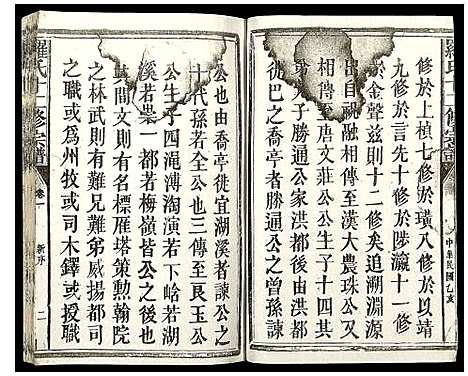 修於上楨七修於璜八修於以靖
九修於言先十修於陟瀛十一修
於金聲兹十二修矣追溯淵源
出自顓頊分封漢大農珠公
相傳至唐文莊公公生子十四其
子勝通公家洪都後由洪都
徙巴之勝通公之曾孫諫
中華民國乙亥
公也由喬亭徙宜湖溪者諫公之
十代孫若公也三傳至艮玉公
公生子四渑溥淘演若下峆若湖
溪若一都若梅嶺皆公之
其間文則有名標雁塔策勲翰院
之林武則有難兄難弟威揚都司
之職或為州牧或司木鐸或援
羅氏十二修宗譜
卷一
新序
二